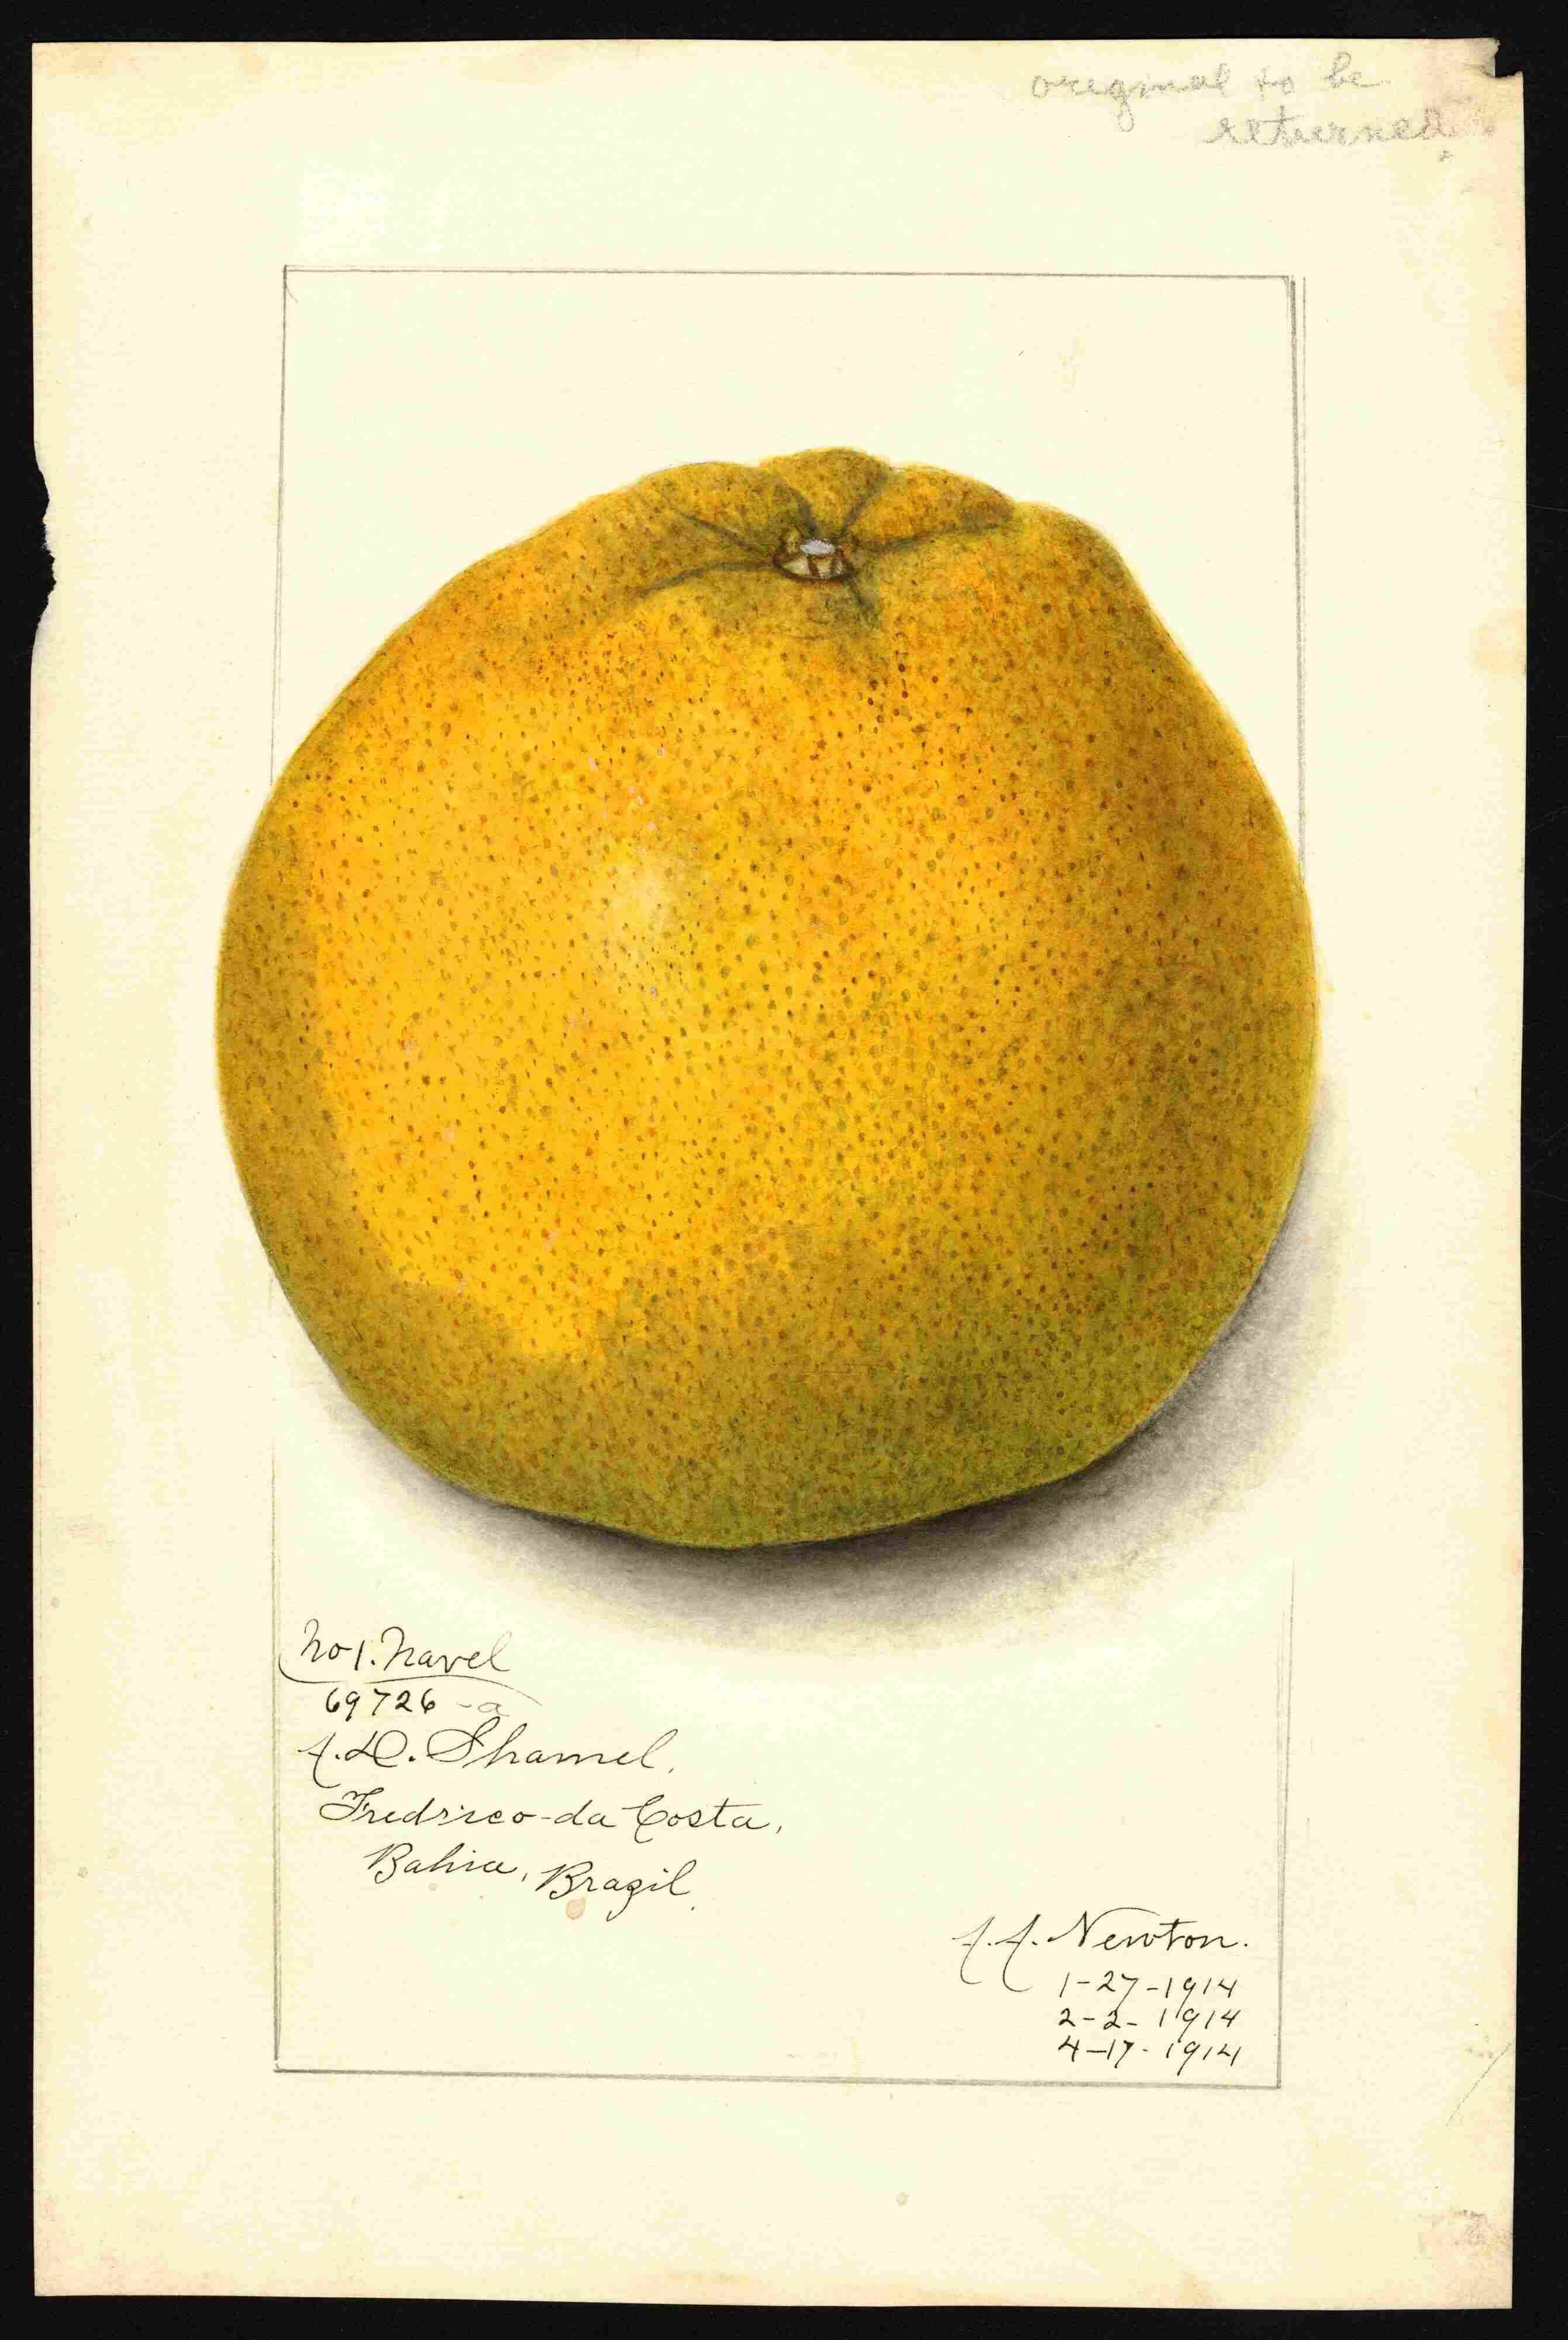 original to be
returned
No 1. Navel
69726 -a
A. D. Shamel,
Fredrico-da Costa,
Bahia, Brazil.
A. A. Newton.
1-27-1914
2-2-1914
4-17-1914